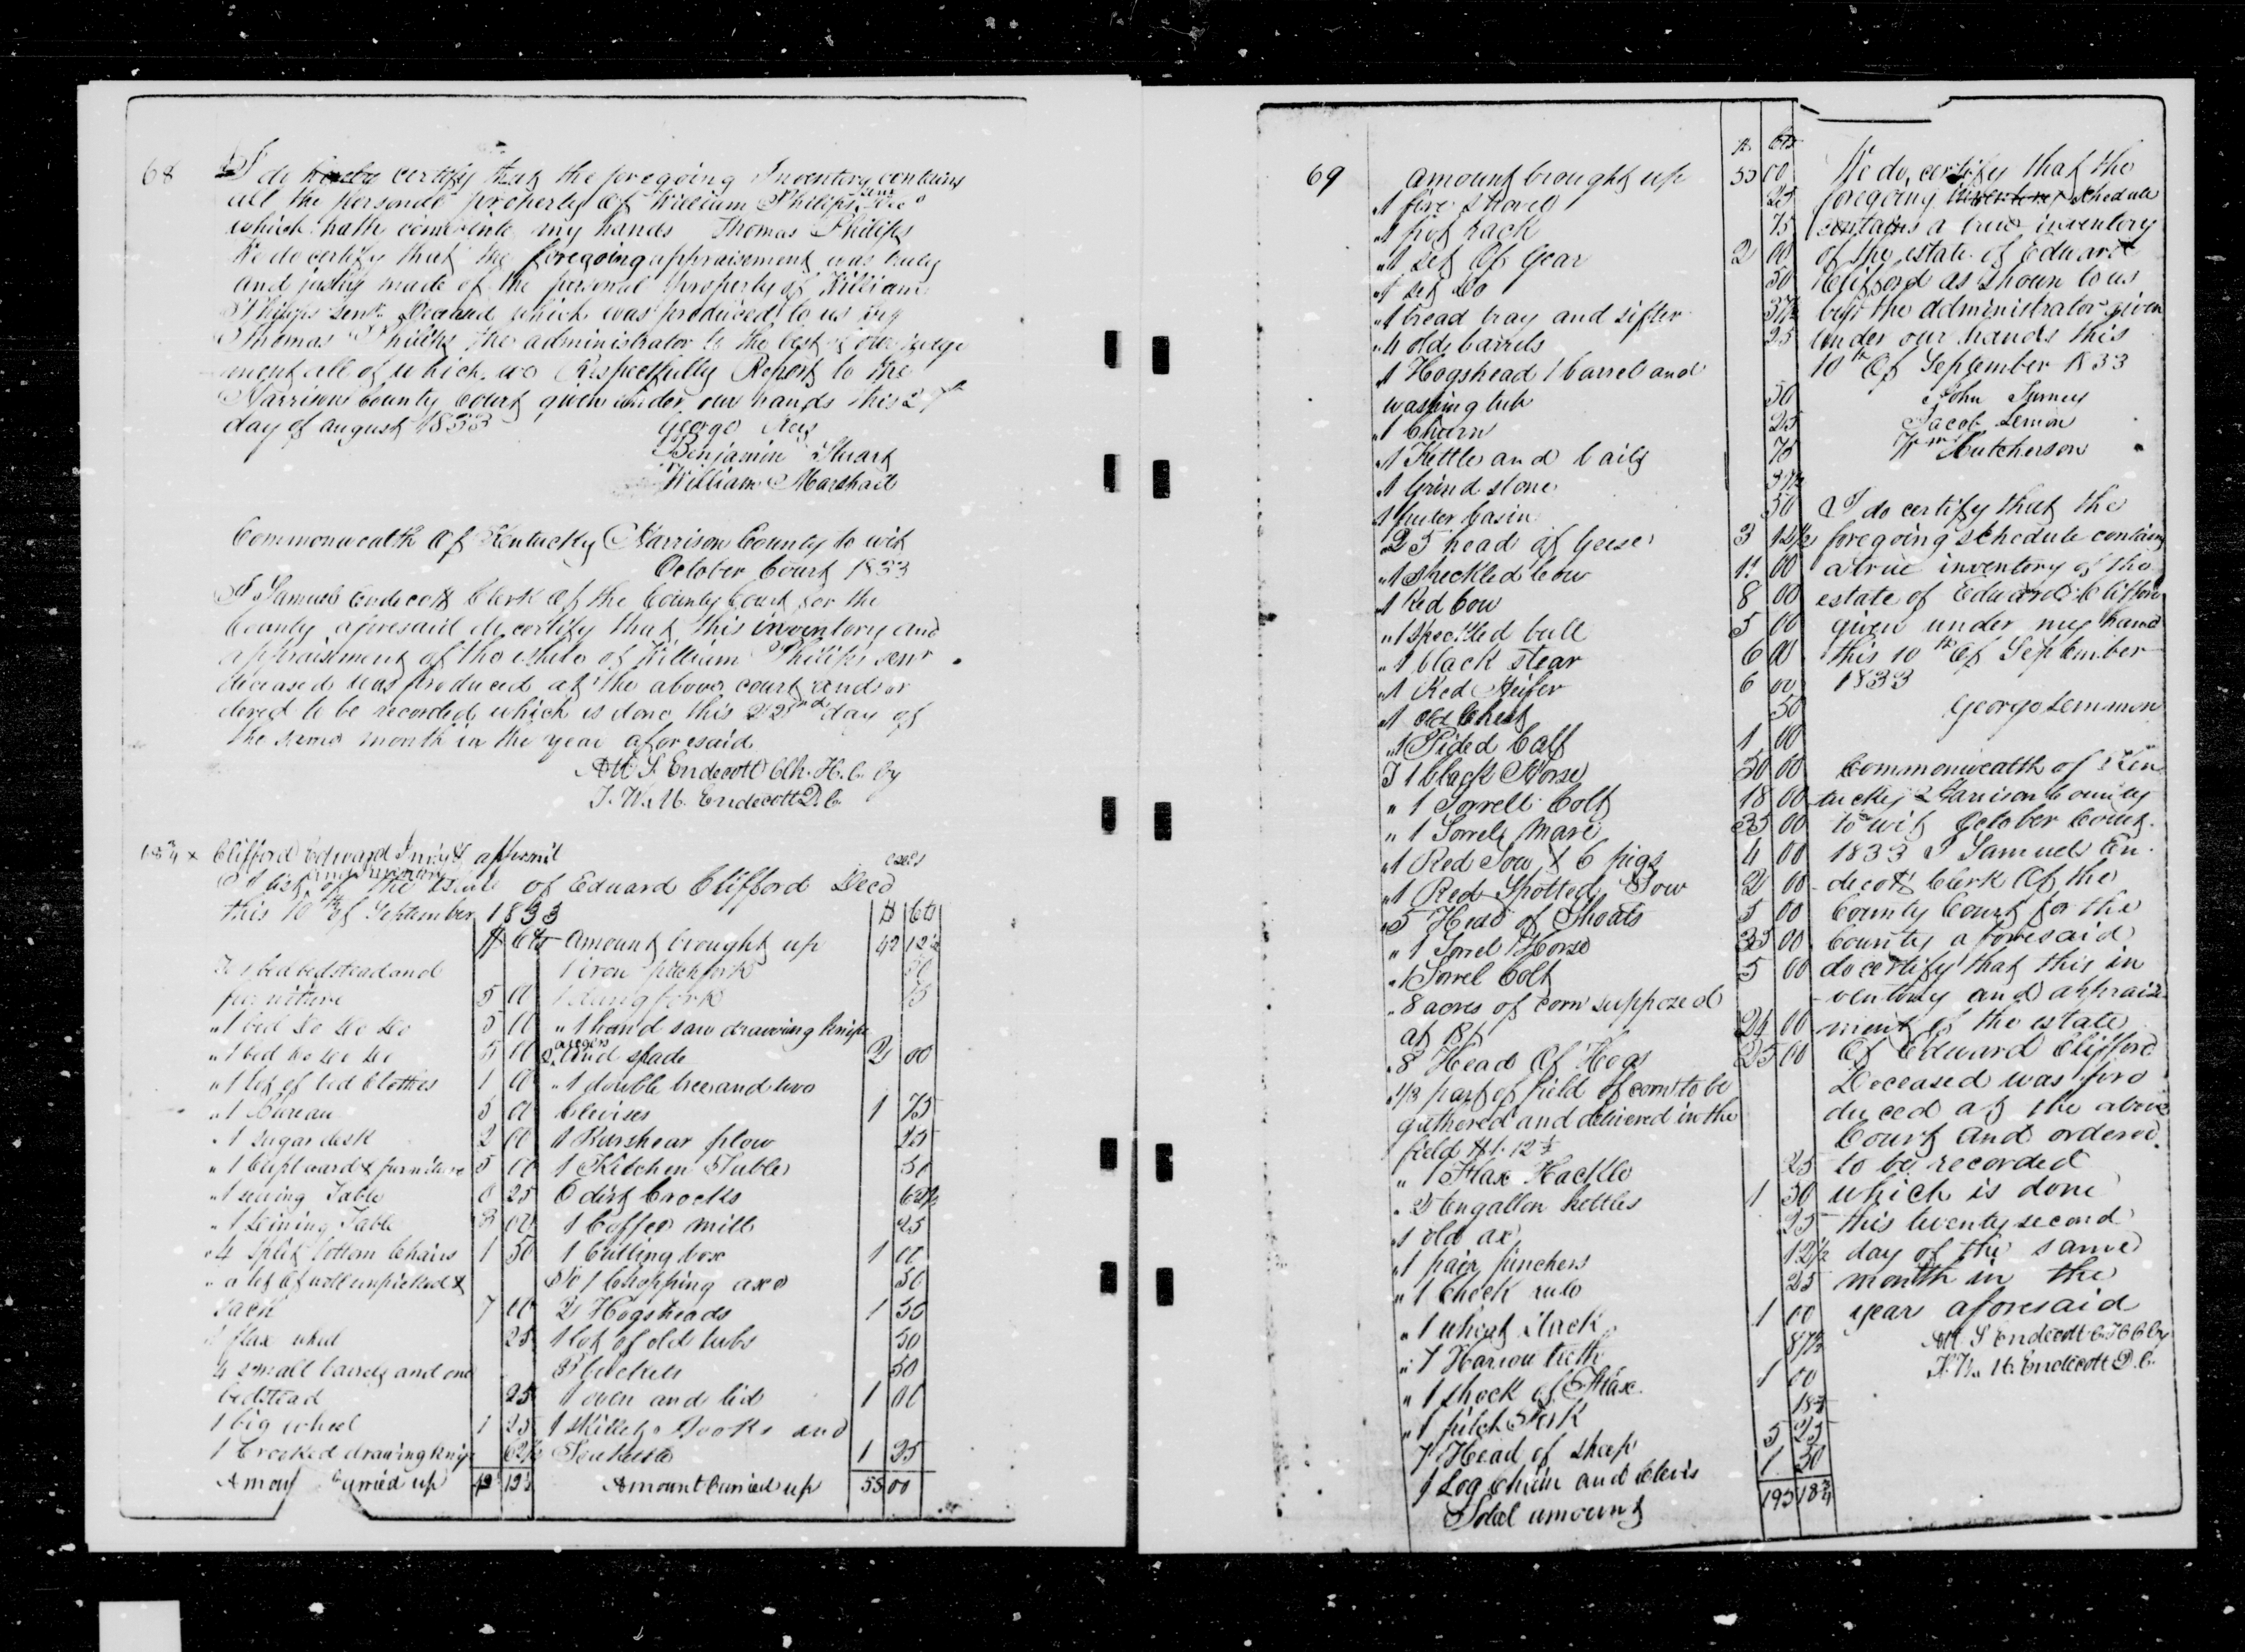 68
I do hereby certify that the foregoing Inventory contains
all the personal property of William Philips Senr Decd
which hath come into my hands Thomas Philips
We do certify that the foregoing appraisement was truly
and justly made of the personal property of William
Philips Senr. Deceased which was produced to us by
Thomas Philips the administrator to the best of our judge
ment all of which we Respectfully Report to the
Harrison County Court given under our hands this 27th
day of august 1833 George
Benjamin Stuart
William Marshall
Commonwealth Of Kentucky Harrison County to wit
October Court 1833
I Samuel Endecott Clerk of the County Court for the
County aforesaid do certify that this inventory and
appraisment of the estate of William Philips senr
deceased was produced at the above court and or
dered to be recorded which is done this 22nd day of
the same month in the year aforesaid
Att S. Endecott Clk. H. C. by
J. W. M. Endecott D. C.
Clifford Edward Invty & apprmt
A list and inventory of the Estate of Eduard Clifford Decd
this 10th of September 1833
$ Cts
1 bed bedstead and
furniture 5 00
" 1 bed Do Do Do 5 00
" 1 bed Do Do Do 5 00
" 1 lot of bed Clothes 1 00
" 1 Bureau 5 00
" 1 sugar desk 2 00
" 1 Cupboard & furniture 5 00
" 1 sewing Table 0 25
" 1 Deining Table 3 00
" 4 split bottom Chairs 1 50
" a lot of woll unpicked &
sack 7 00
1 flax wheel 25
4 small barrels and one
bedstead 25
1 big wheel 1 25
1 Crooked drawing knife 62½
Amount Carried up 42 12½
$ Cts
Amount brought up 42 12½
1 iron pitchfork 50
1 dung fork 75
" 1 hand saw drawing knife
2 augers and spade 2 00
" 1 double tree and two
Clevises 1 75
1 Barshear plow 25
1 Kitchen Table 50
6 dirt Crocks 62½
1 Coffee mill 25
1 Cutting box 1 00
1 Chopping axe 50
2 Hogsheads 1 50
1 lot of old tubs 50
3 buckets 50
1 oven and lid 1 00
1 skillet Hooks and
Teakettle 1 25
Amount Carried up 55 00
69
$ Cts
amount brought up 55 00
" 1 fire shovel 25
" 1 pot rack 75
" 1 set Of Gear 2 00
" 1 set Do 50
" 1 bread tray and sifter 37½
" 4 old barrels 25
" 1 Hogshead 1 barrel and
washing tub 50
" 1 Churn 25
" 1 Kettle and bail 75
" 1 Grind stone 37½
1 puter basin 50
25 head of Geese 3 12½
" 1 speckled Cow 11 00
" 1 Red Cow 8 00
" 1 speckled bull 5 00
" 1 black stear 6 00
" 1 Red Heifer 6 00
" 1 old Chest 50
" 1 Pided Calf 1 00
1 black Horse 30 00
" 1 Sorrell Colt 18 00
" 1 Sorrel Mare 35 00
" 1 Red Sow & 6 pigs 4 00
" 1 Red Spotted Sow 2 00
" 5 Head of Shoats 5 00
" 1 Sorrel Horse 35 00
" 1 Sorrel Colt 5 00
" 8 acres of corn supposed
at 18/ 24 00
" 8 Head Of Hogs 25 00
" 1/3 part of field of corn to be
gathered and delivered in the
field $1.12½
" 1 Flax Hackle 25
" 2 tengallon kettles 1 50
" 1 old ax 25
" 1 pair pinchers 12½
" 1 Check rule 25
" 1 wheat stack 1 00
" 7 Harrow teeth 87½
" 1 shock of Flax 1 00
" 1 pitch Fork 18¾
7 Head of sheep 5 25
1 Log Chain and Clevis 1 50
Total amount 195 18¾
We do certify that the
foregoing inventory schedule
contains a true inventory
of the estate of Eduard
Clifford as shown to us
by the administrator given
under our hands this
10th Of September 1833
John Turney
Jacob Lemon
Wm Hutcherson
I do certify that the
foregoing schedule contains
a true inventory of the
estate of Eduard Clifford
given under my hand
this 10th Of September
1833
George Lemmon
Commonwealth of Ken
tucky Harrison County
to wit October Court
1833 I Samuel En
decott Clerk Of the
County Court for the
County aforesaid
do certify that this in
ventory and appraise
ment of the estate
Of Eduard Clifford
Deceased was pro
duced at the above
Court and ordered
to be recorded
which is done
this twenty second
day of the same
month in the
year aforesaid
Att S Endecott C H C C by
J. W. M. Endecott D. C.